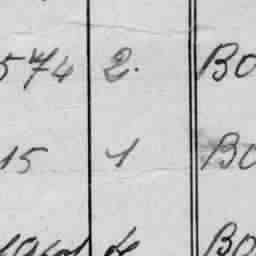 574 2. BO
15 1 BO
BO